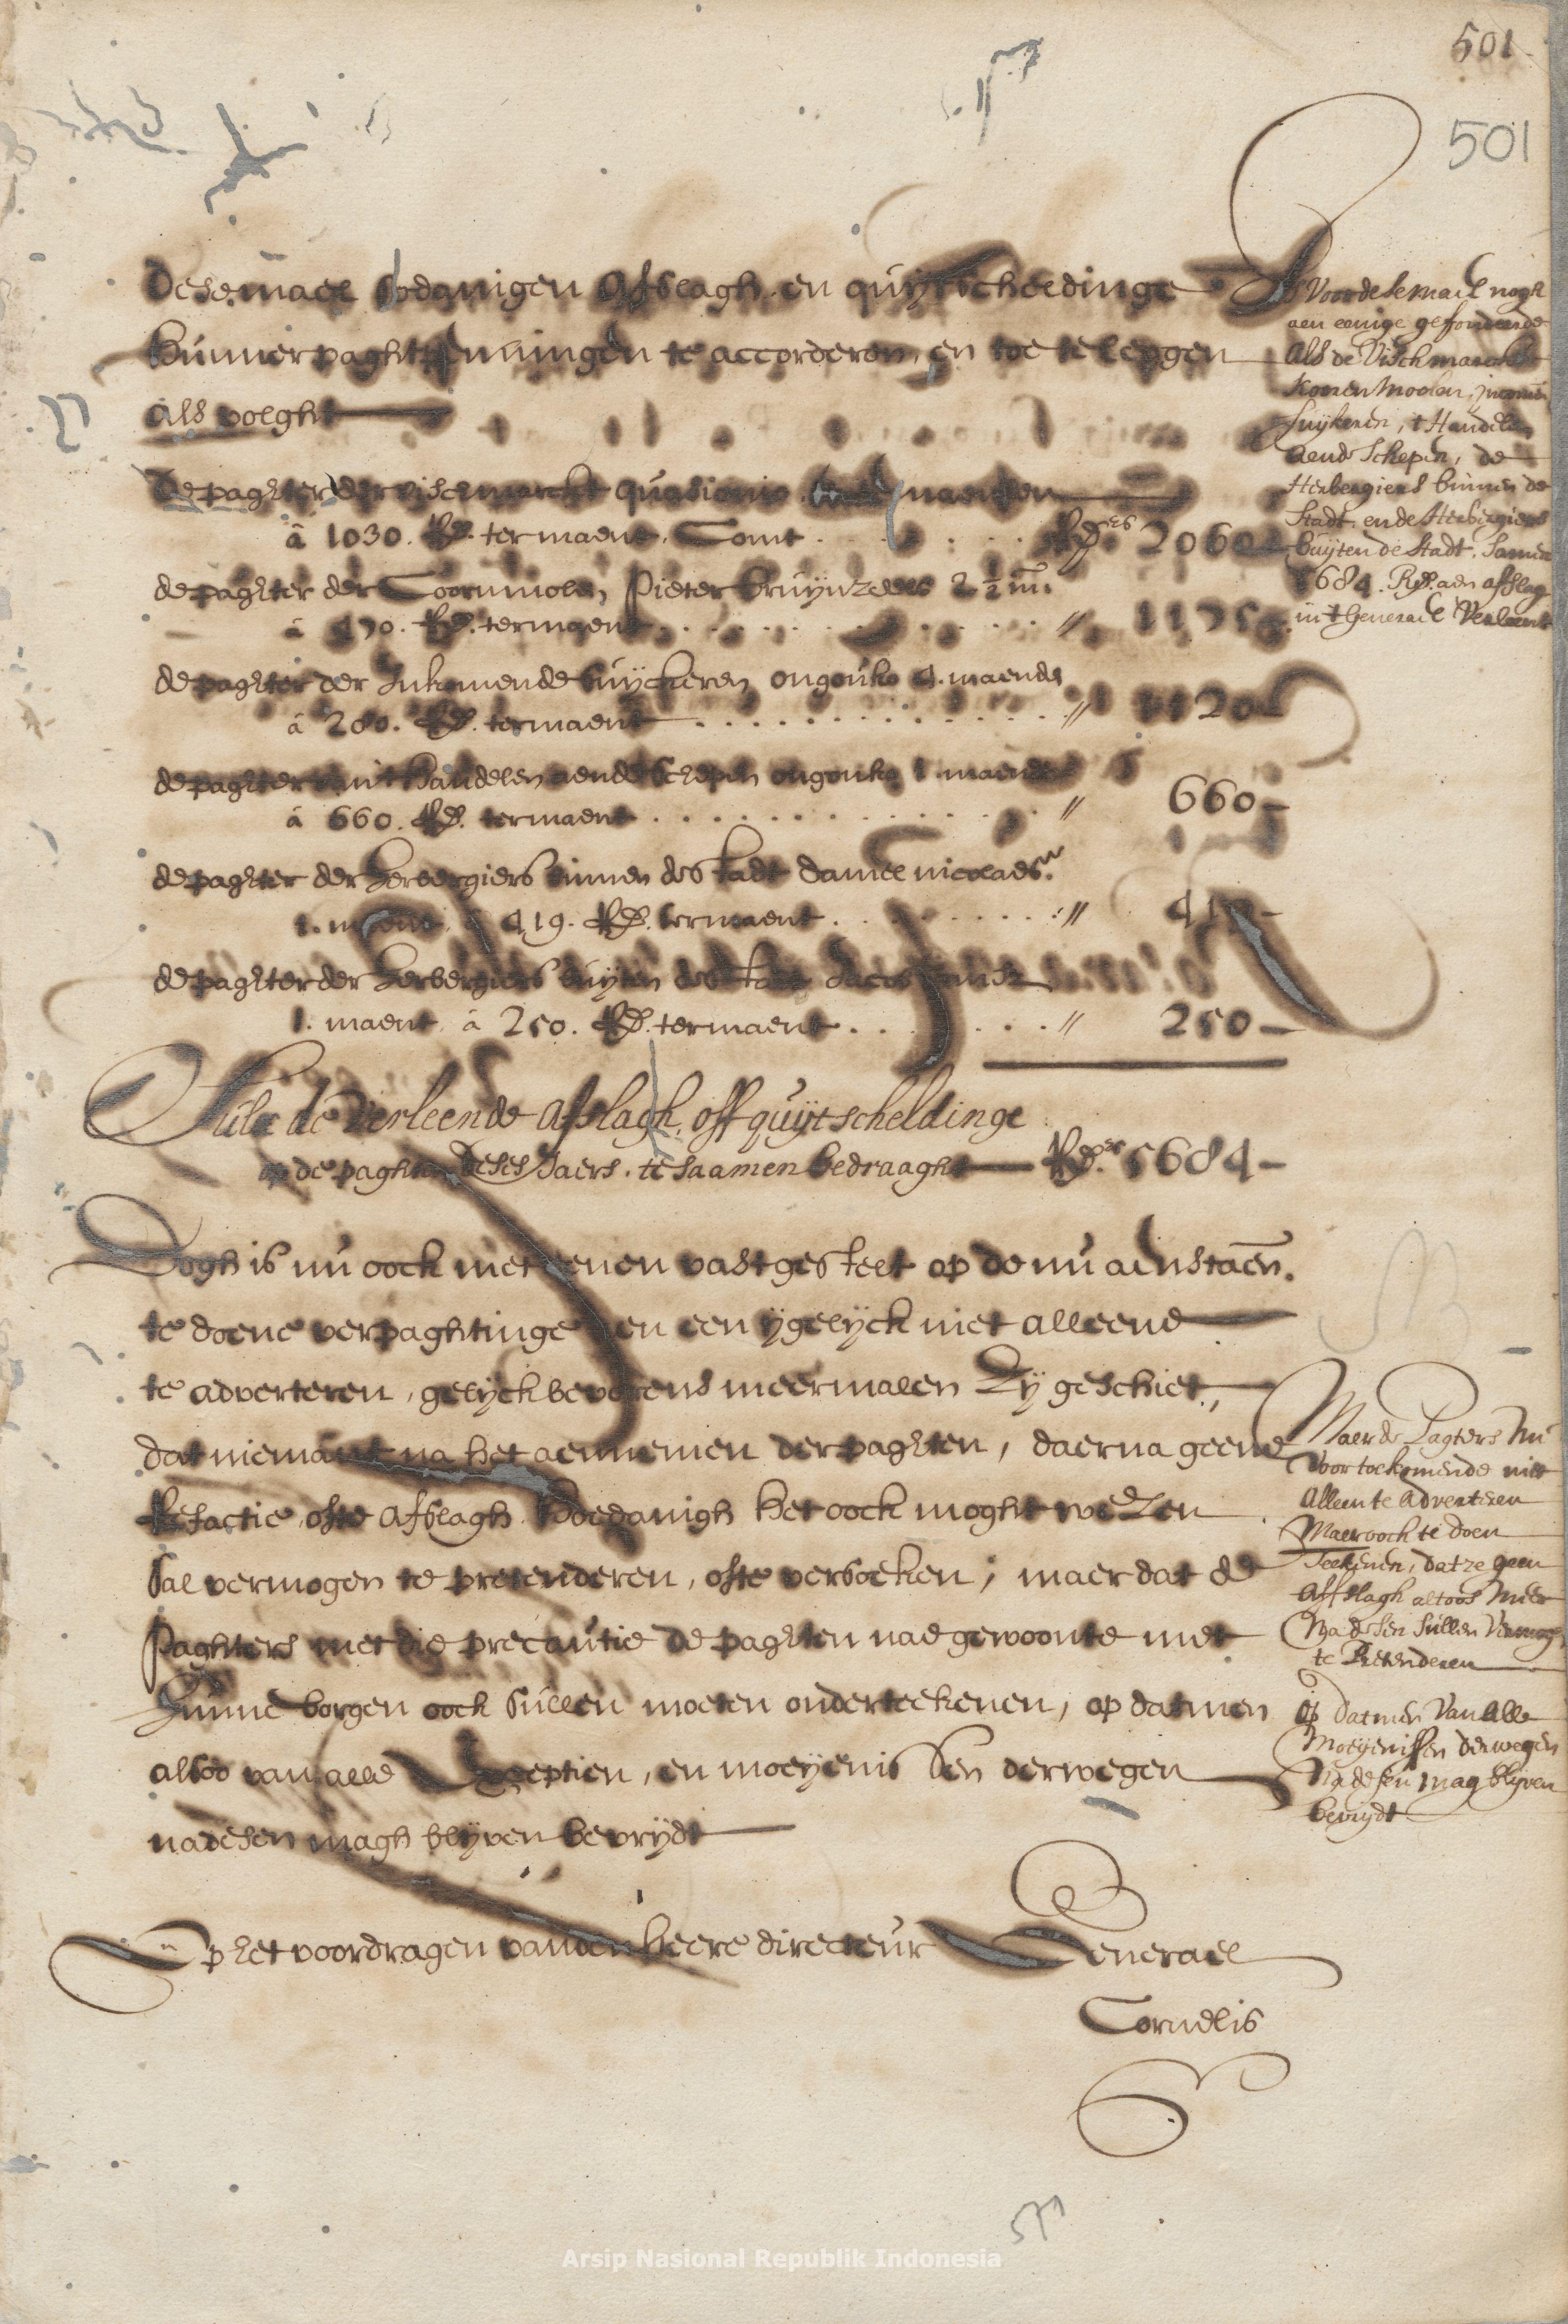 501
501
desemael sodanigen afslagh en quijtscheldinge
hunner paghtpenningen te accorderen, en toe te leggen
als volght
de paghter der vischmarckt quasionio twee maenden
â 1030. Rds. ter maent. Comt . . . . . Rds.es 2060 —
de paghter der Coornmolen Pieter bruijnzeels 2½ m.
â 470. Rds. ter maent . . . . . . . . . " 1175 —
de paghter der Inkomende suijckeren ongouko 4. maenden
â 280. Rds. ter maent . . . . . . . . . " 1120 —
de pachter van 't handelen aende schepen ongouko 1 maendt
â 660. Rds. ter maent . . . . . . . . . " 660 —
de paghter der herbergiers binnen de stadt daniel nicolaes.
1. maent, â 419. Rds. ter maent . . . . . . " 419 —
de paghter der herbergiers buijten de stadt Jacob
1. maent, â 250. Rds. ter maent . . . . . . " 250 —
Sulx de verleende afslagh, off quijtscheldinge
op de paghten deses Jaers. te saamen bedraaght — Rds.es 5684 —
Dogh is nu oock met eenen vastgestelt op de nu aenstaen.
te doene verpaghtinge een ijgelijck niet alleene
te adverteren, gelijck bevorens meermalen zij geschiet,
dat niemant na het aennemen der paghten, daerna geene
Refactie ofte afslagh hoedanigh het oock moght wezen
sal vermogen te pretenderen, ofte versoeken; maer dat de
paghters met die precautie de paghten nae gewoonte met
hunne borgen oock sullen moeten onderteekenen, op datmen
alsoo van alle exceptien, en moeijenissen derwegen
nadesen magh blijven bevrijdt
Op het voordragen van den heere directeur Generael
Cornelis
Is voor desemael nogh
aen eenige
als de Vischmarckt
Koorn Moolen, Incom.
suijkeren, 't Handelen
aende Schepen, de
Herbergiers binnen de
Stadt, en de Herbergiers
buijten de Stadt. Samen
5684. Rds. aen afslag
in 't Generael Verleent
Maer de Pagters nu
voor toekomende niet
alleen te adverteren
Maer ooch te doen
teekenen, dat ze geen
affslagh altoos meer
Na desen sullen vermog.
te Pretenderen
op datmen van alle
Moeijenissen derwegen
na desen mag blijven
bevrijdt
Arsip Nasional Republik Indonesia